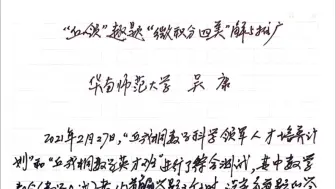 “丘领”趣题“微积分四美”解与推广
华南师范大学 吴康
2021年2月27日,“丘成桐数学科学领军人才培养计
划”和“丘成桐数学英才班”进行了综合测试,其中数学